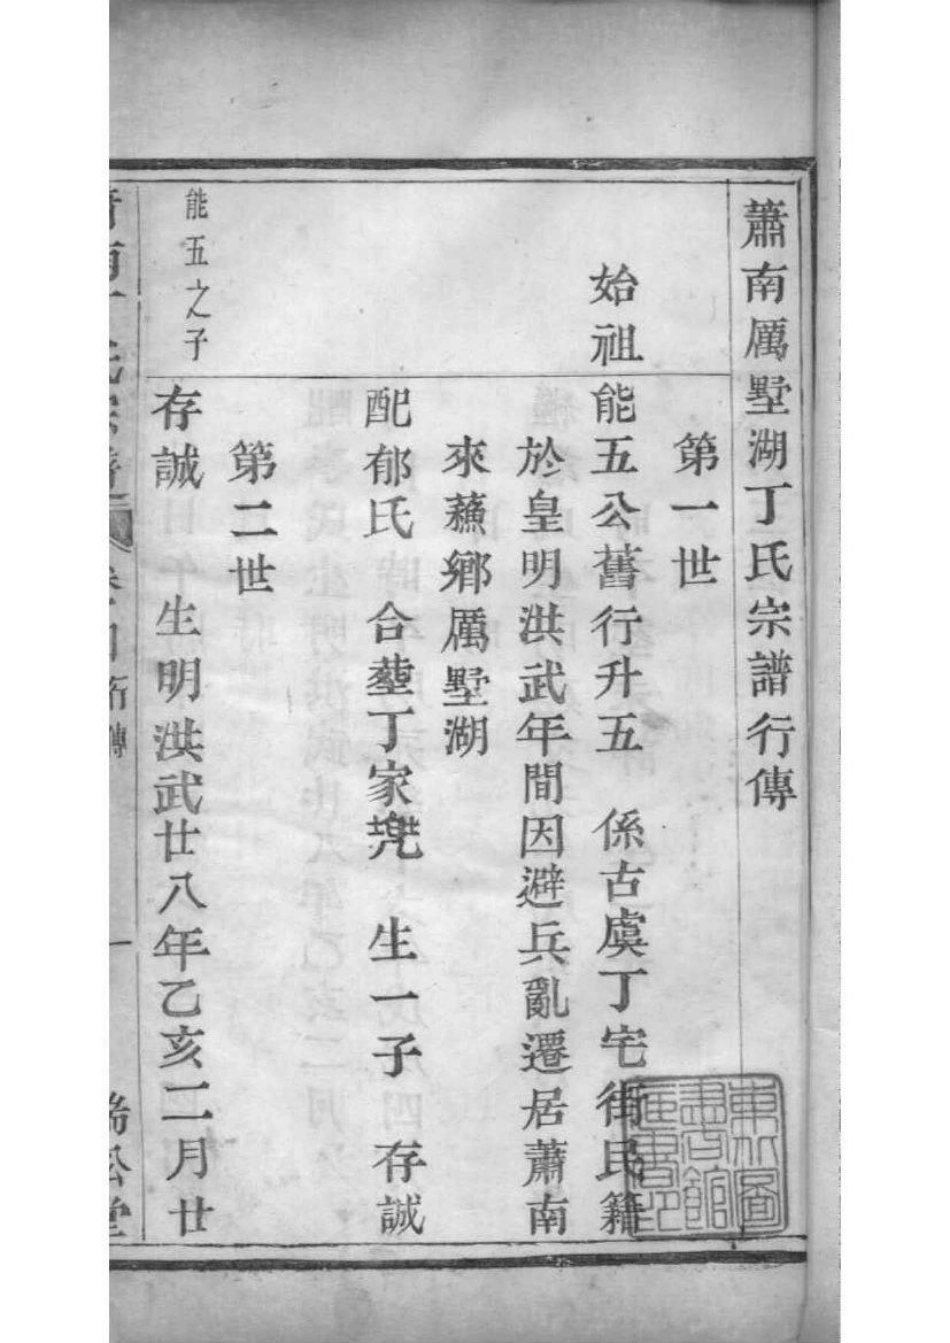 蕭南厲墅湖丁氏宗譜行傳
第一世
始祖
能五公舊行升五　係古虞丁宅街民籍
於皇明洪武年間因避兵亂遷居蕭南
來蘓鄉厲墅湖
配郁氏　合塟丁家兠　生一子　存誠
第二世
能五之子
存誠　生明洪武廿八年乙亥二月廿